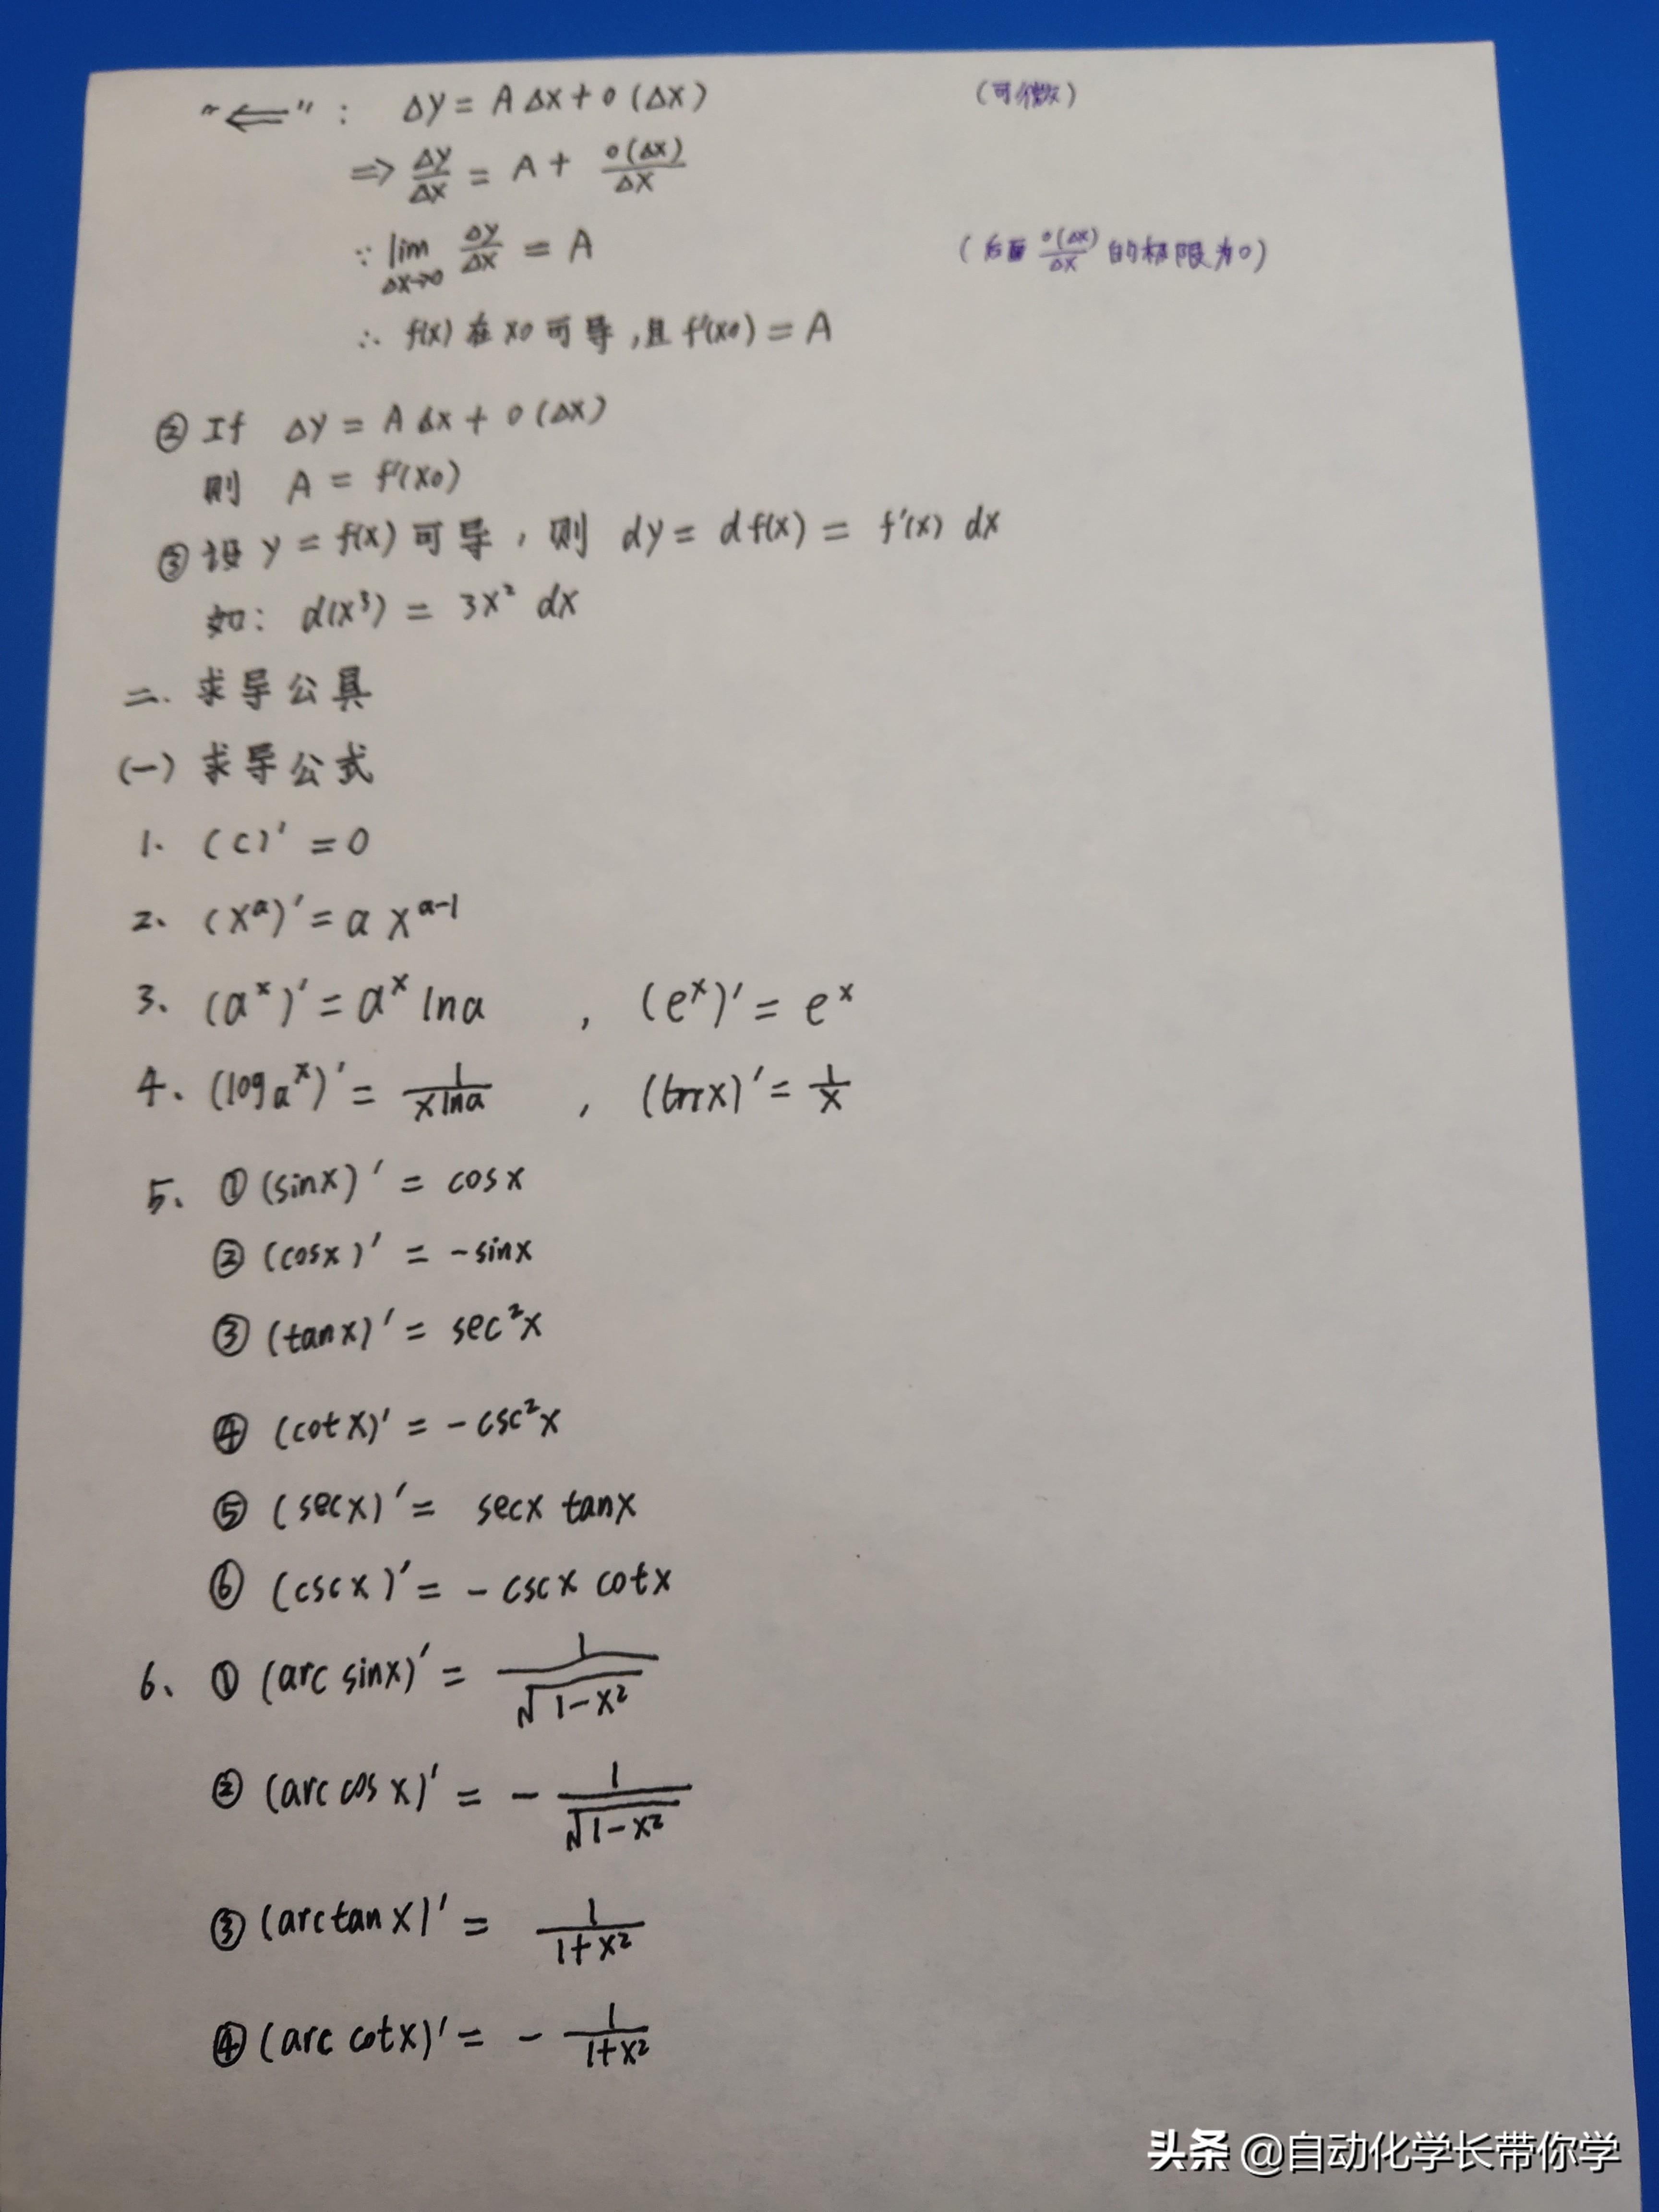 “⇐”： Δy = AΔx + o(Δx) （可微）
⇒ Δy/Δx = A + o(Δx)/Δx
∵ lim Δx→0 Δy/Δx = A （后面 o(Δx)/Δx 的极限为0）
∴ f(x) 在 x0 可导，且 f'(x0) = A
② If Δy = AΔx + o(Δx)
则 A = f'(x0)
③ 设 y = f(x) 可导，则 dy = df(x) = f'(x) dx
如： d(x³) = 3x² dx
二. 求导公具
(一) 求导公式
1. (c)' = 0
2、 (x^a)' = a x^(a-1)
3、 (a^x)' = a^x lna ， (e^x)' = e^x
4、 (log a^x)' = 1/(x lna) ， (lnx)' = 1/x
5、 ① (sinx)' = cosx
② (cosx)' = -sinx
③ (tanx)' = sec²x
④ (cotx)' = -csc²x
⑤ (secx)' = secx tanx
⑥ (cscx)' = -cscx cotx
6、 ① (arc sinx)' = 1/√(1-x²)
② (arc cosx)' = - 1/√(1-x²)
③ (arctanx)' = 1/(1+x²)
④ (arc cotx)' = - 1/(1+x²)
头条 @自动化学长带你学